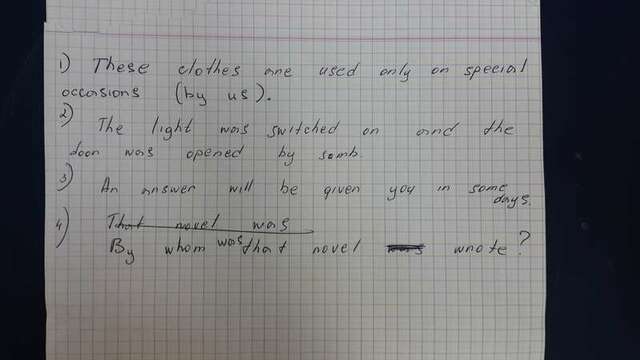 1) These clothes are used only on special
occasions (by us).
2) The light was switched on and the
door was opened by somb.
3) An answer will be given you in some
days.
4) That novel was
By whom was that novel was wrote?